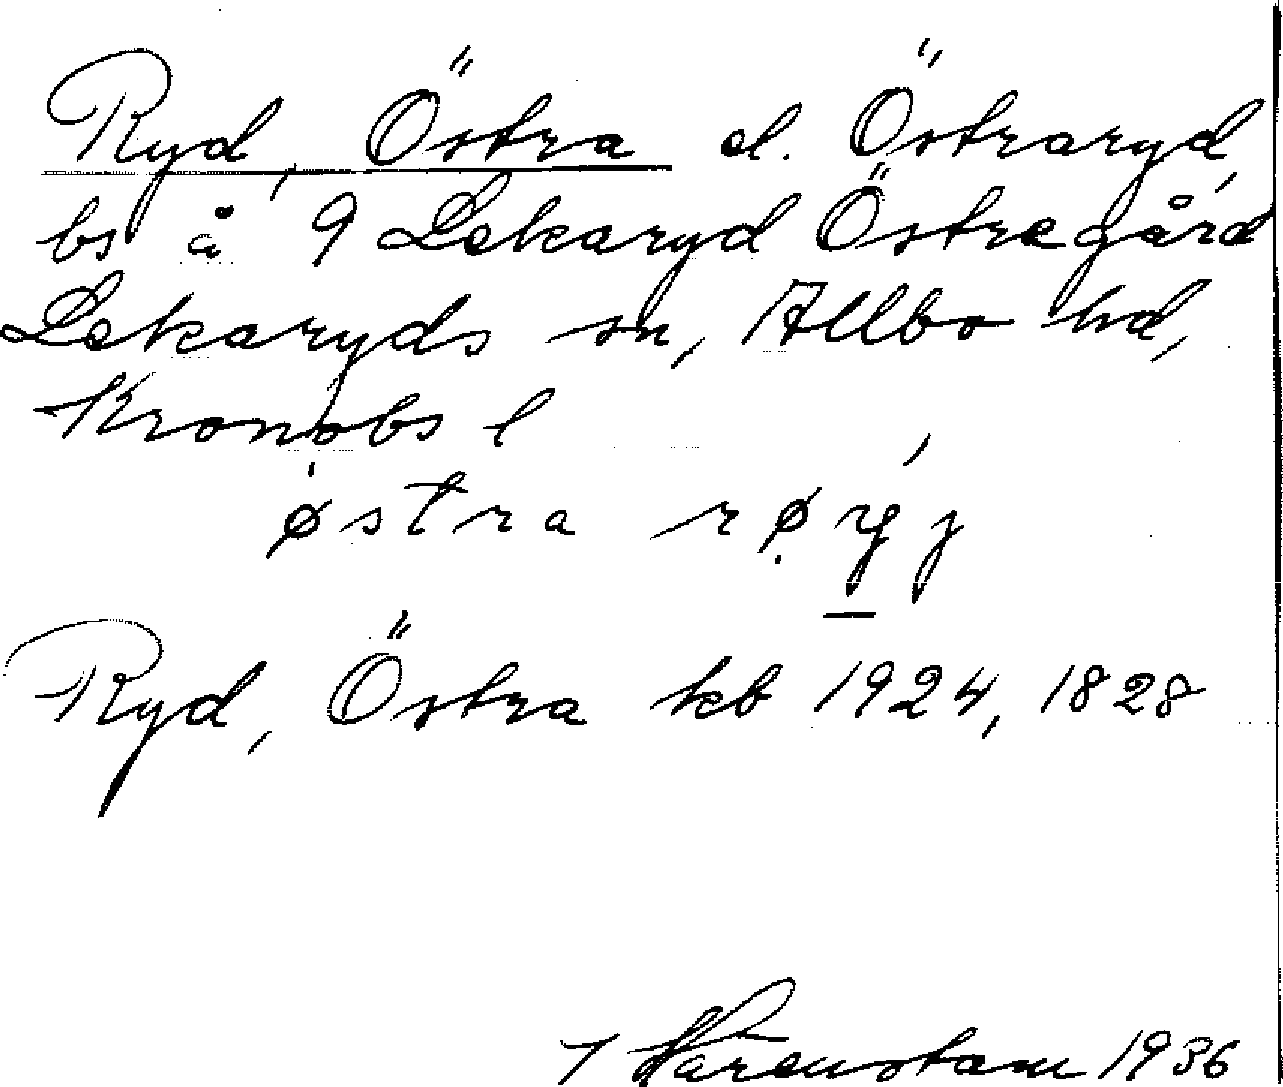 Ryd, Östra el. Östraryd,
bs å 9 Lekaryd Östregård
Lekaryds sn, Allbo hd,
Kronobs l
østra røyj
Ryd, Östra kb 1924, 1828
1936